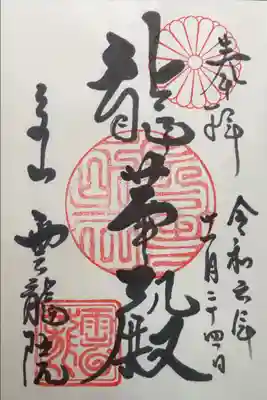 奉拝
令和六年
十一月二十四日
龍華殿
泉山 雲龍院